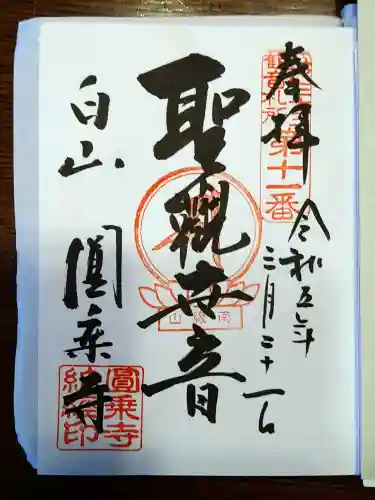 奉拝
觀音札所
第十一番
令和五年
三月二十一日
聖観世音
南縁山
白山
圓乗寺
圓乗寺
納経印